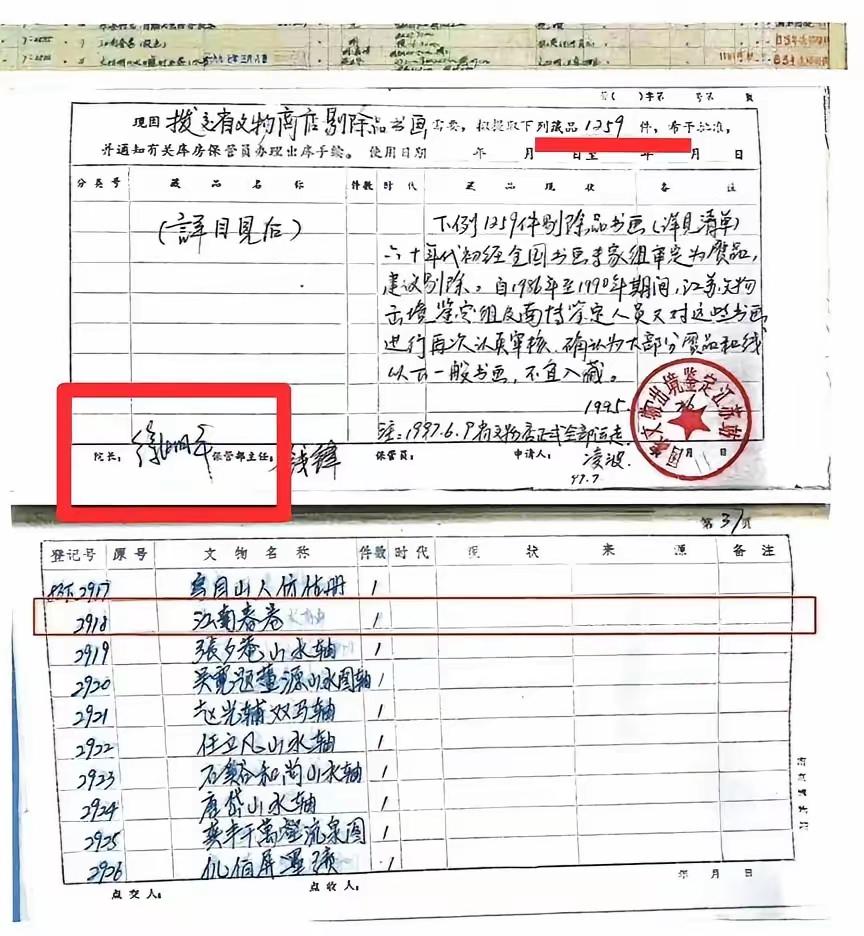 现因 拨交省文物商店剔除品书画 需要，拟提取下列藏品 1259 件，希予批准，
并通知有关库房保管员办理出库手续。使用日期 年 月 日至 年 月 日
分类号 藏品名称 件数 时代 藏品现状 备注
(詳目見后)
下列1259件剔除品书画(详见清单)
六十年代初经全国书画专家组审定为贋品，
建议剔除。自1986年至1990年期间，江苏文物
出境鉴定组及南博鉴定人员又对这些书画
进行再次认真审核，确认为大部分贋品和线
以下一般书画，不宜入藏。
1995.
注：1997.6.9省文物店正式全部运走
院长： 徐湖平 保管部主任： 钱锋 保管员： 申请人： 凌波
97.7
月 日
文物出境鉴定江苏站
第37页
登记号 原号 文物名称 件数 时代 现状 来源 备注
2917 乌目山人仿古册 1
2918 江南春卷 1
2919 張夕菴山水轴 1
2920 吴寬题董源山水图轴 1
2921 赵光辅双马轴 1
2922 任立凡山水轴 1
2923 石溪和尚山水轴 1
2924 唐岱山水轴 1
2925 龚半千萬壑流泉图 1
2926 仇伯屏墨蹟 1
年 月 日
点交人： 点收人：